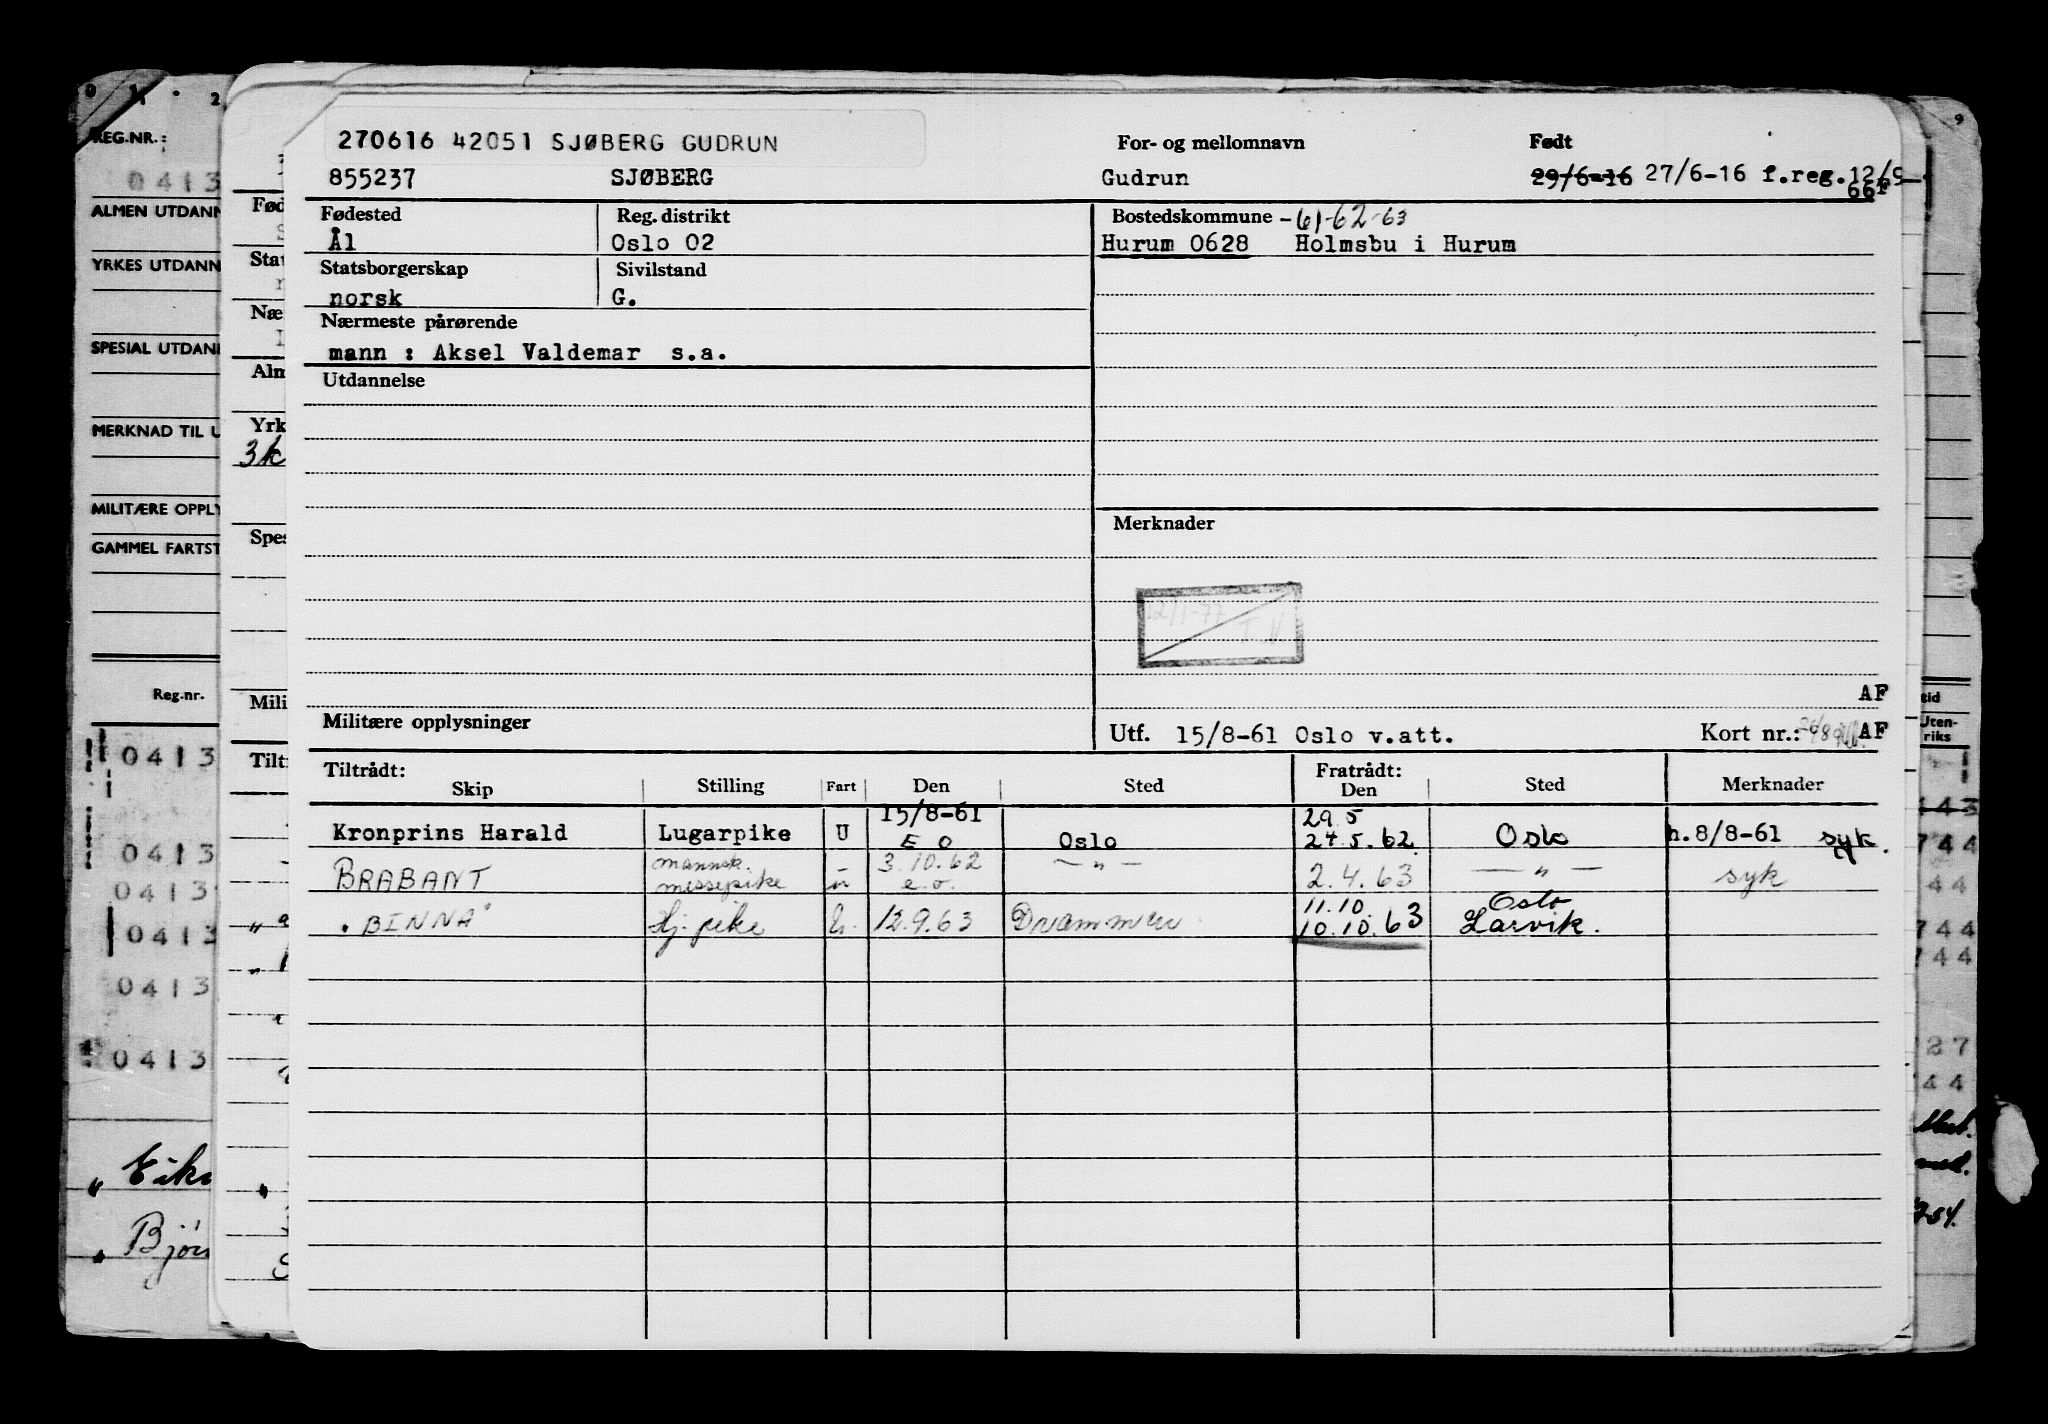 270616 42051 SJØBERG GUDRUN
For- og mellomnavn
Født
855237 SJØBERG Gudrun 29/6-16 27/6-16 f.reg.12/9-
66F
Fødested
Reg. distrikt
Bostedskommune -61-62-63
Ål
Oslo 02
Hurum 0628 Holmsbu i Hurum
Statsborgerskap
Sivilstand
norsk
G.
Nærmeste pårørende
mann : Aksel Valdemar s.a.
Utdannelse
Merknader
12/1-77
T.
AF
Militære opplysninger
Utf. 15/8-61 Oslo v.att.
Kort nr.: AF
Tiltrådt:
Fratrådt:
Skip Stilling Fart Den Sted Den Sted Merknader
15/8-61 29.5
Kronprins Harald Lugarpike U E O Oslo 24.5.62. Oslo h.8/8-61 syk.
mannsk. 3.10.62
BRABANT messepike u e.o. — " — 2.4.63 — " — syk
11.10. Oslo
"BINNA" Hj. pike 12.9.63 Drammen 10.10.63 Larvik.
REG.NR.:
0413
ALMEN UTDANN
YRKES UTDANN
SPESIAL UTDANN
MERKNAD TIL U
MILITÆRE OPPLY
GAMMEL FARTST
Reg.nr.
0413
0413
0413
0413
0413
0413
Eiks
Björ
Fød
Stat
Næ
Alm
Yrk
3k
Spes
Mili
Tilt
9
tid
Uten-
riks
443
744
44
744
744
27
44